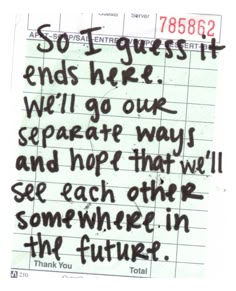 Server
785862
APPT-SOUP/SAL-ENTREE
So I guess it
ends here.
We'll go our
separate ways
and hope that we'll
see each other
somewhere in
the future.
Thank You Total
210